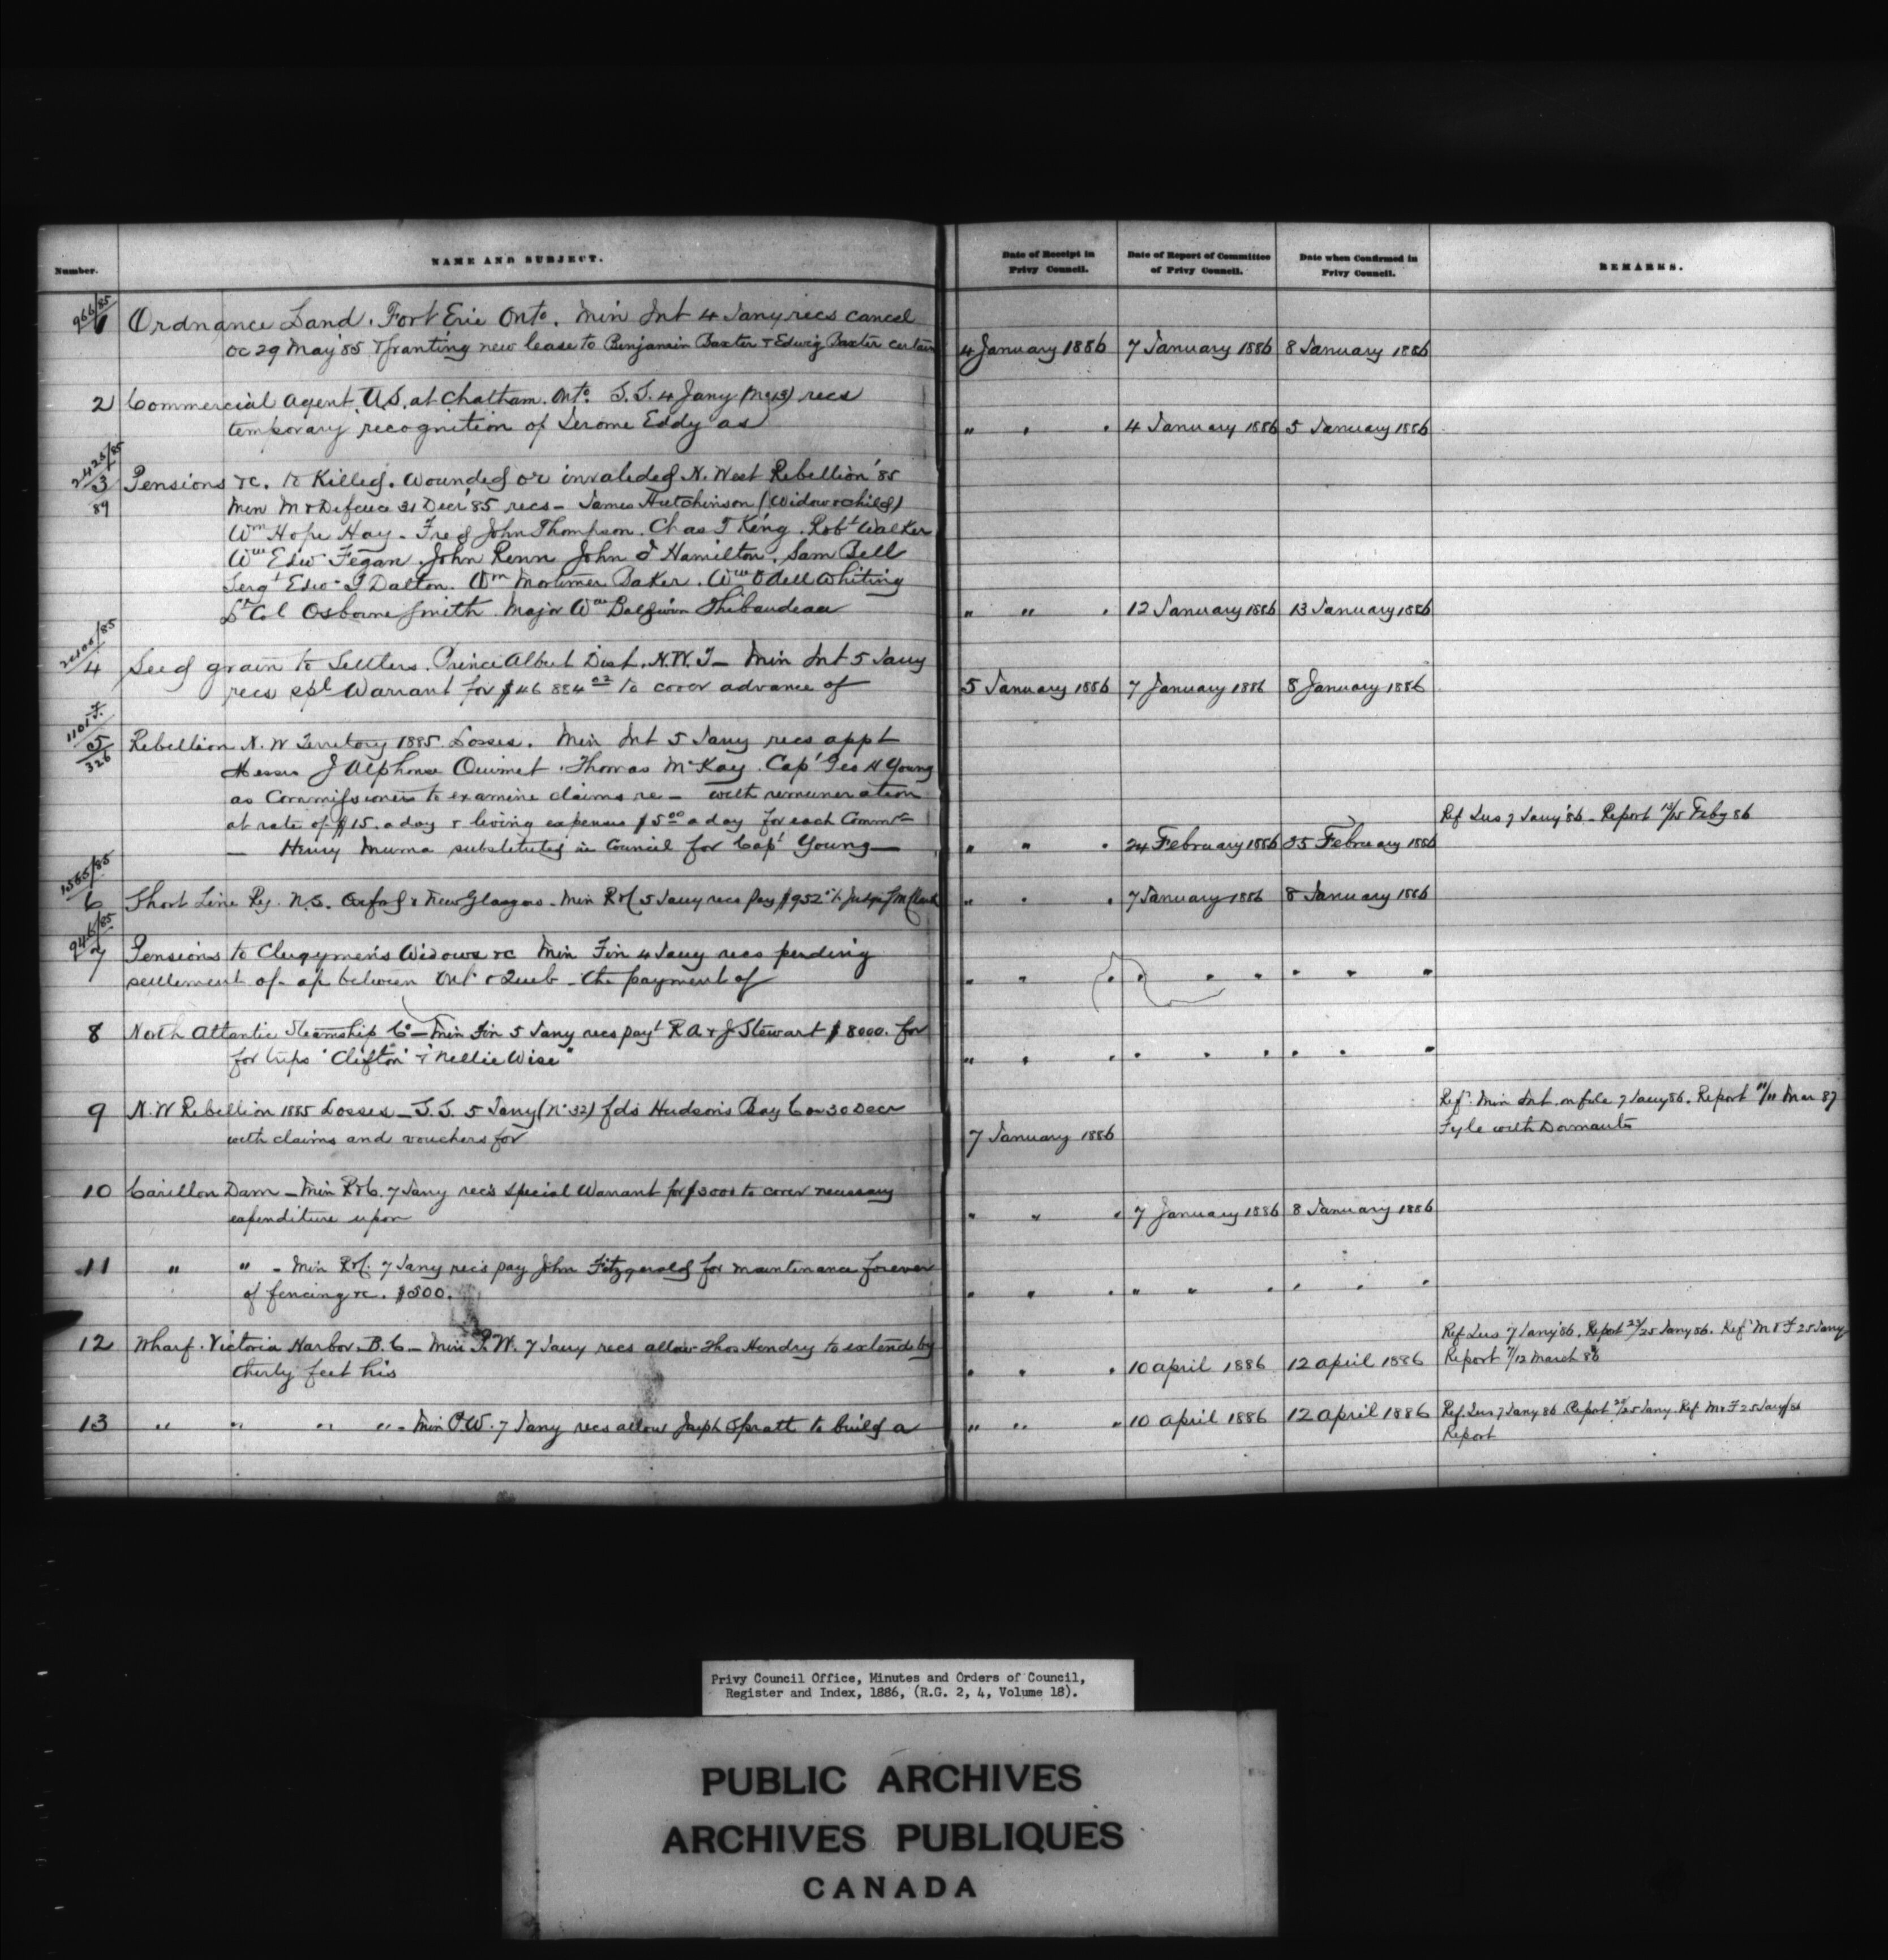 Number.
NAME AND SUBJECT.
Date of Receipt in Privy Council.
Date of Report of Committee of Privy Council.
Date when Confirmed in Privy Council.
REMARKS.
966/85
1 Ordnance Land. Fort Erie Onto. Min Int 4 Jany recs cancel
OC 29 May '85 & granting new lease to Benjamin Baxter & Edwig Baxter certain
4 January 1886 7 January 1886 8 January 1886
2 Commercial Agent. U.S. at Chatham. Onto. S.S. 4 Jany recs
temporary recognition of Jerome Eddy as
" " " 4 January 1886 5 January 1886
2425/85
3 Pensions &c. to Killed. Wounded or invalided N. West Rebellion '85
89 Min M & Defence 31 Decr '85 recs - James Hutchinson (Widow & child)
Wm Hope Hay. Fred John Thompson. Chas T King. Robt Walker
Wm Edw Fegan. John Renn John J Hamilton. Sam Bell
Sergt Edw T Dalton. Wm Mortimer Baker. Wm Odell Whiting
Lt Col Osborne Smith. Major Wm Baldwin Thibaudeau
" " " 12 January 1886 13 January 1886
4 Seed grain to Settlers. Prince Albert Dist. N.W.T - Min Int 5 Jany
recs spl Warrant for $46 884 02 to cover advance of
5 January 1886 7 January 1886 8 January 1886
1101 F.
5 Rebellion N. W Territory 1885 Losses. Min Int 5 Jany recs appt
326 Messrs J Alphonse Ouimet. Thomas McKay. Capt Geo H Young
as Commissioners to examine claims re - with remuneration
at rate of $15. a day & living expenses $5 00 a day for each Commr
- Henry Muma substituted in Council for Capt Young -
" " " 24 February 1886 25 February 1886
Ref Jus 7 Jany '86 - Report 13/15 Feby 86
1565/85
6 Short Line Ry. N.S. Oxford & New Glasgow - Min R&C 5 Jany recs pay $952 to Judge
" " " 7 January 1886 8 January 1886
946/85
7 Pensions to Clergymen's Widows &c Min Fin 4 Jany recs pending
settlement of - ap between Ont & Queb - the payment of
" " " " " " " " "
8 North Atlantic Steamship Co - Min Fin 5 Jany recs payt R A & J Stewart $8000. for
for trips "Clifton" & "Nellie Wise"
" " " " " " " " "
9 N. W Rebellion 1885 Losses - S.S. 5 Jany (No 32) fds Hudson's Bay Co 30 Decr
with claims and vouchers for
7 January 1886
Ref. Min Int on file 7 Jany 86. Report 11/11 Mar 87
Fyle with Dormants
10 Carillon Dam - Min R&C. 7 Jany recs Special Warrant for $3000 to cover necessary
expenditure upon
" " " 7 January 1886 8 January 1886
11 " " - Min R&C. 7 Jany recs pay John Fitzgerald for maintenance forever
of fencing &c. $500.
" " " " " " " " "
12 Wharf. Victoria Harbor. B.C - Min P.W. 7 Jany recs allow Thos Hendry to extend by
thirty feet his
" " " 10 April 1886 12 April 1886
Ref Jus 7 Jany '86. Report 22/25 Jany 86. Ref M & F 25 Jany
Report 11/12 March 86
13 " " " " - Min P.W. 7 Jany recs allow Joseph Spratt to build a
" " " 10 April 1886 12 April 1886
Ref Jus 7 Jany 86 Report 22/25 Jany. Ref M & F 25 Jany/86
Report
Privy Council Office, Minutes and Orders of Council,
Register and Index, 1886, (R.G. 2, 4, Volume 18).
PUBLIC ARCHIVES
ARCHIVES PUBLIQUES
CANADA